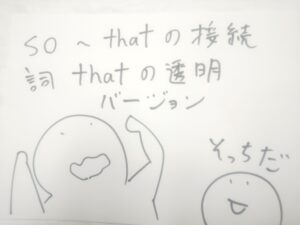 so ~ that の接続
詞 that の透明
バージョン
そっちだ